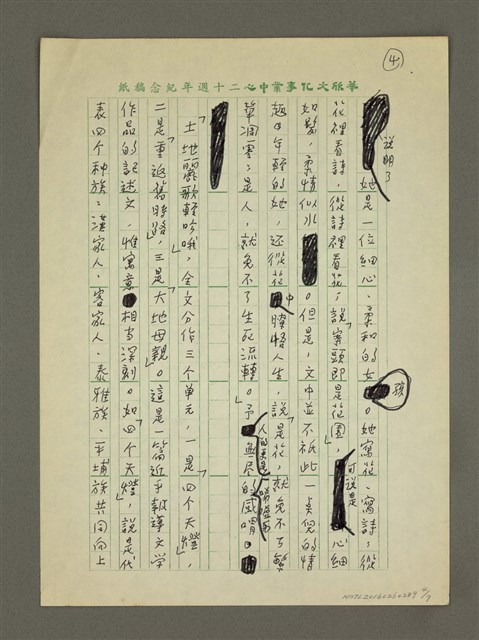 ④
華欣文化事業中心二十週年紀念稿紙
說明了她是一位細心、柔和的女孩。她寫花、寫詩；從
花裡看詩，從詩裡看花，說案頭即是花園，可說是心細
如髮，柔情似水。但是，文中並不祇此一點倪的情
趣。年輕的她，還從花中瞭悟人生，說「是花，就免不了繁
華凋零；是人，就免不了生死流轉。」予人的美是無盡的感喟。
「土地驪歌輕吟哦」全文分作三個單元，一是「四個天燈」，
二是「重返舊時路」，三是「大地母親」。這是一篇近乎報導文學
作品的記述文，惟寓意相當深刻。如「四個天燈」，說是代
表四個种族：漢家人、客家人、泰雅族、平埔族共同向上
NMTL20160260289 4/7